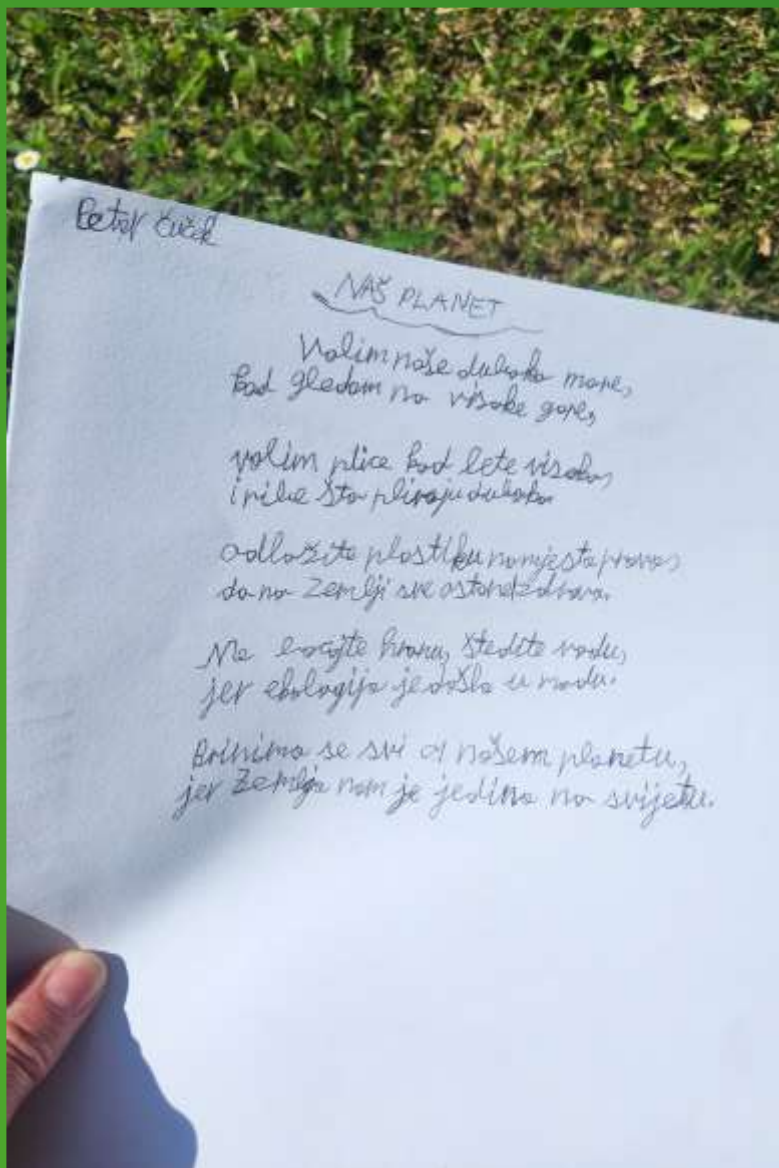 Petar Čuček
NAŠ PLANET
Volim naše duboko more,
kad gledam na visoke gore,
volim ptice kad lete visoko,
i ribe što plivaju duboko.
Odložite plastiku na mjesta prava,
da na Zemlji sve ostane zdravo.
Ne bacajte hranu, štedite vodu,
jer ekologija je došla u modu.
Brinimo se svi o našem planetu,
jer Zemlja nam je jedina na svijetu.